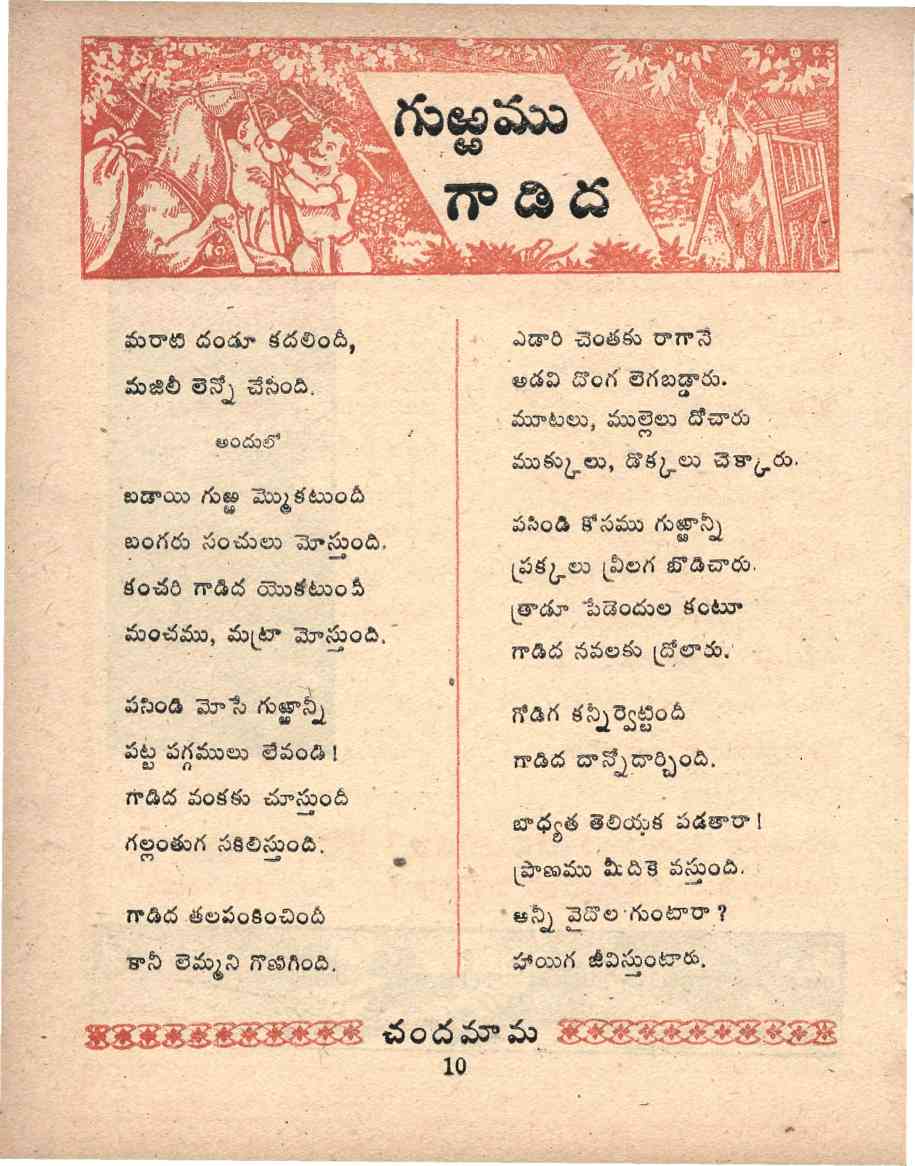 గుఱ్ఱము
గాడిద
మరాటి దండూ కదలిందీ,
మజిలీ లెన్నో చేసింది.
అందులో
బడాయి గుఱ్ఱ మ్మొకటుందీ
బంగరు సంచులు మోస్తుంది.
కంచరి గాడిద యొకటుందీ
మంచము, మట్రా మోస్తుంది.
పసిండి మోసే గుఱ్ఱాన్నీ
పట్ట పగ్గములు లేవండి!
గాడిద వంకకు చూస్తుందీ
గల్లంతుగ సకిలిస్తుంది.
గాడిద తలపంకించిందీ
కానీ లెమ్మని గొణిగింది.
ఎడారి చెంతకు రాగానే
అడవి దొంగ లెగబడ్డారు.
మూటలు, ముల్లెలు దోచారు
ముక్కులు, డొక్కలు చెక్కారు.
పసిండి కోసము గుఱ్ఱాన్నీ
ప్రక్కలు వ్రీలగ బొడిచారు.
త్రాడూ పేడెందుల కంటూ
గాడిద నవలకు ద్రోలారు.
గోడిగ కన్నీర్వెట్టిందీ
గాడిద దాన్నోదార్చింది.
బాధ్యత తెలియక పడతారా!
ప్రాణము మీదికె వస్తుంది.
అన్నీ వైదొల గుంటారా?
హాయిగ జీవిస్తుంటారు.
చందమామ
10